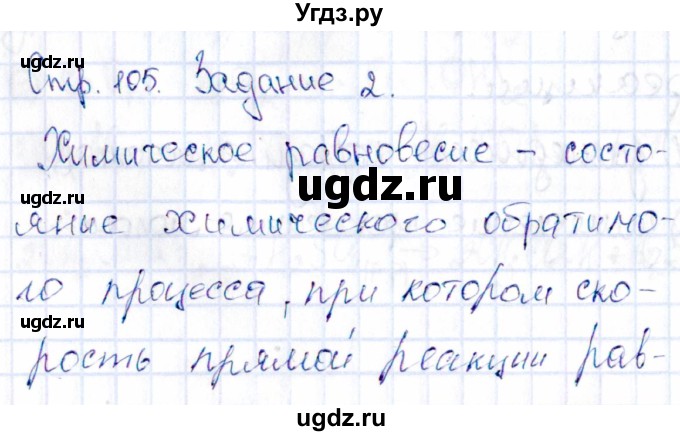 Угдз.ру
ugdz.ru
Стр. 105. Задание 2.
Химическое равновесие – состо-
ugdz.ru
ugdz.ru
яние химического обратимо-
го процесса, при котором ско-
ugdz.ru
рость прямой реакции рав-
ugdz.ru